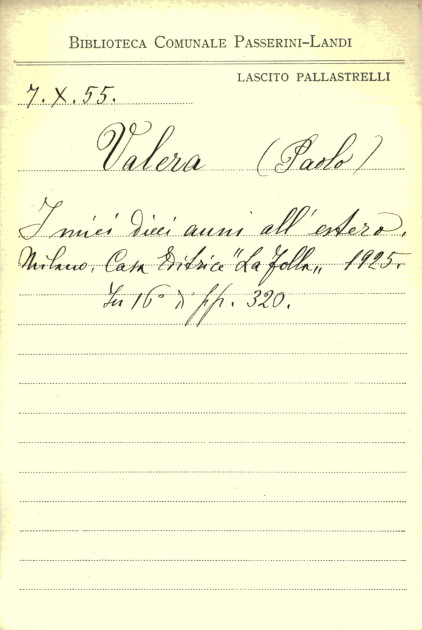 BIBLIOTECA COMUNALE PASSERINI-LANDI
LASCITO PALLASTRELLI
7.X.55.
Valera (Paolo)
I miei dieci anni all'estero.
Milano, Casa Editrice "La Folla„ 1925.
In 16° di pp. 320.